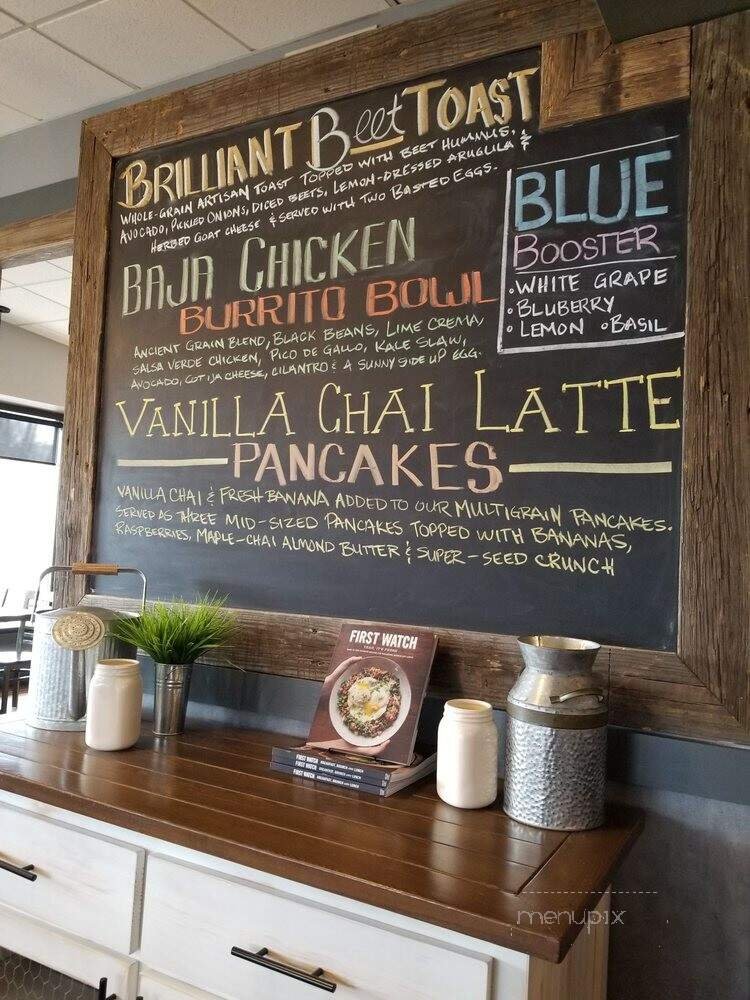 BRILLIANT Beet TOAST
WHOLE-GRAIN ARTISAN TOAST TOPPED WITH BEET HUMMUS,
AVOCADO, PICKLED ONIONS, DICED BEETS, LEMON-DRESSED ARUGULA &
HERBED GOAT CHEESE & SERVED WITH TWO BASTED EGGS.
BAJA CHICKEN
BURRITO BOWL
ANCIENT GRAIN BLEND, BLACK BEANS, LIME CREMA,
SALSA VERDE CHICKEN, PICO DE GALLO, KALE SLAW,
AVOCADO, COTIJA CHEESE, CILANTRO & A SUNNY SIDE UP EGG.
BLUE
BOOSTER
• WHITE GRAPE
• BLUBERRY
• LEMON • BASIL
VANILLA CHAI LATTE
PANCAKES
VANILLA CHAI & FRESH BANANA ADDED TO OUR MULTIGRAIN PANCAKES.
SERVED AS THREE MID-SIZED PANCAKES TOPPED WITH BANANAS,
RASPBERRIES, MAPLE-CHAI ALMOND BUTTER & SUPER-SEED CRUNCH
FIRST WATCH
YEAH, IT'S FRESH
FIRST WATCH BREAKFAST, BRUNCH AND LUNCH
FIRST WATCH BREAKFAST, BRUNCH AND LUNCH
FIRST WATCH BREAKFAST, BRUNCH AND LUNCH
menupix